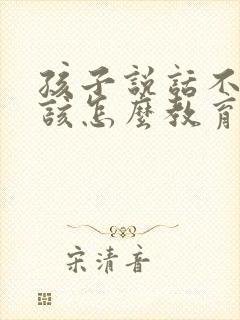 孩子説話不
該怎麼教育
宋清音